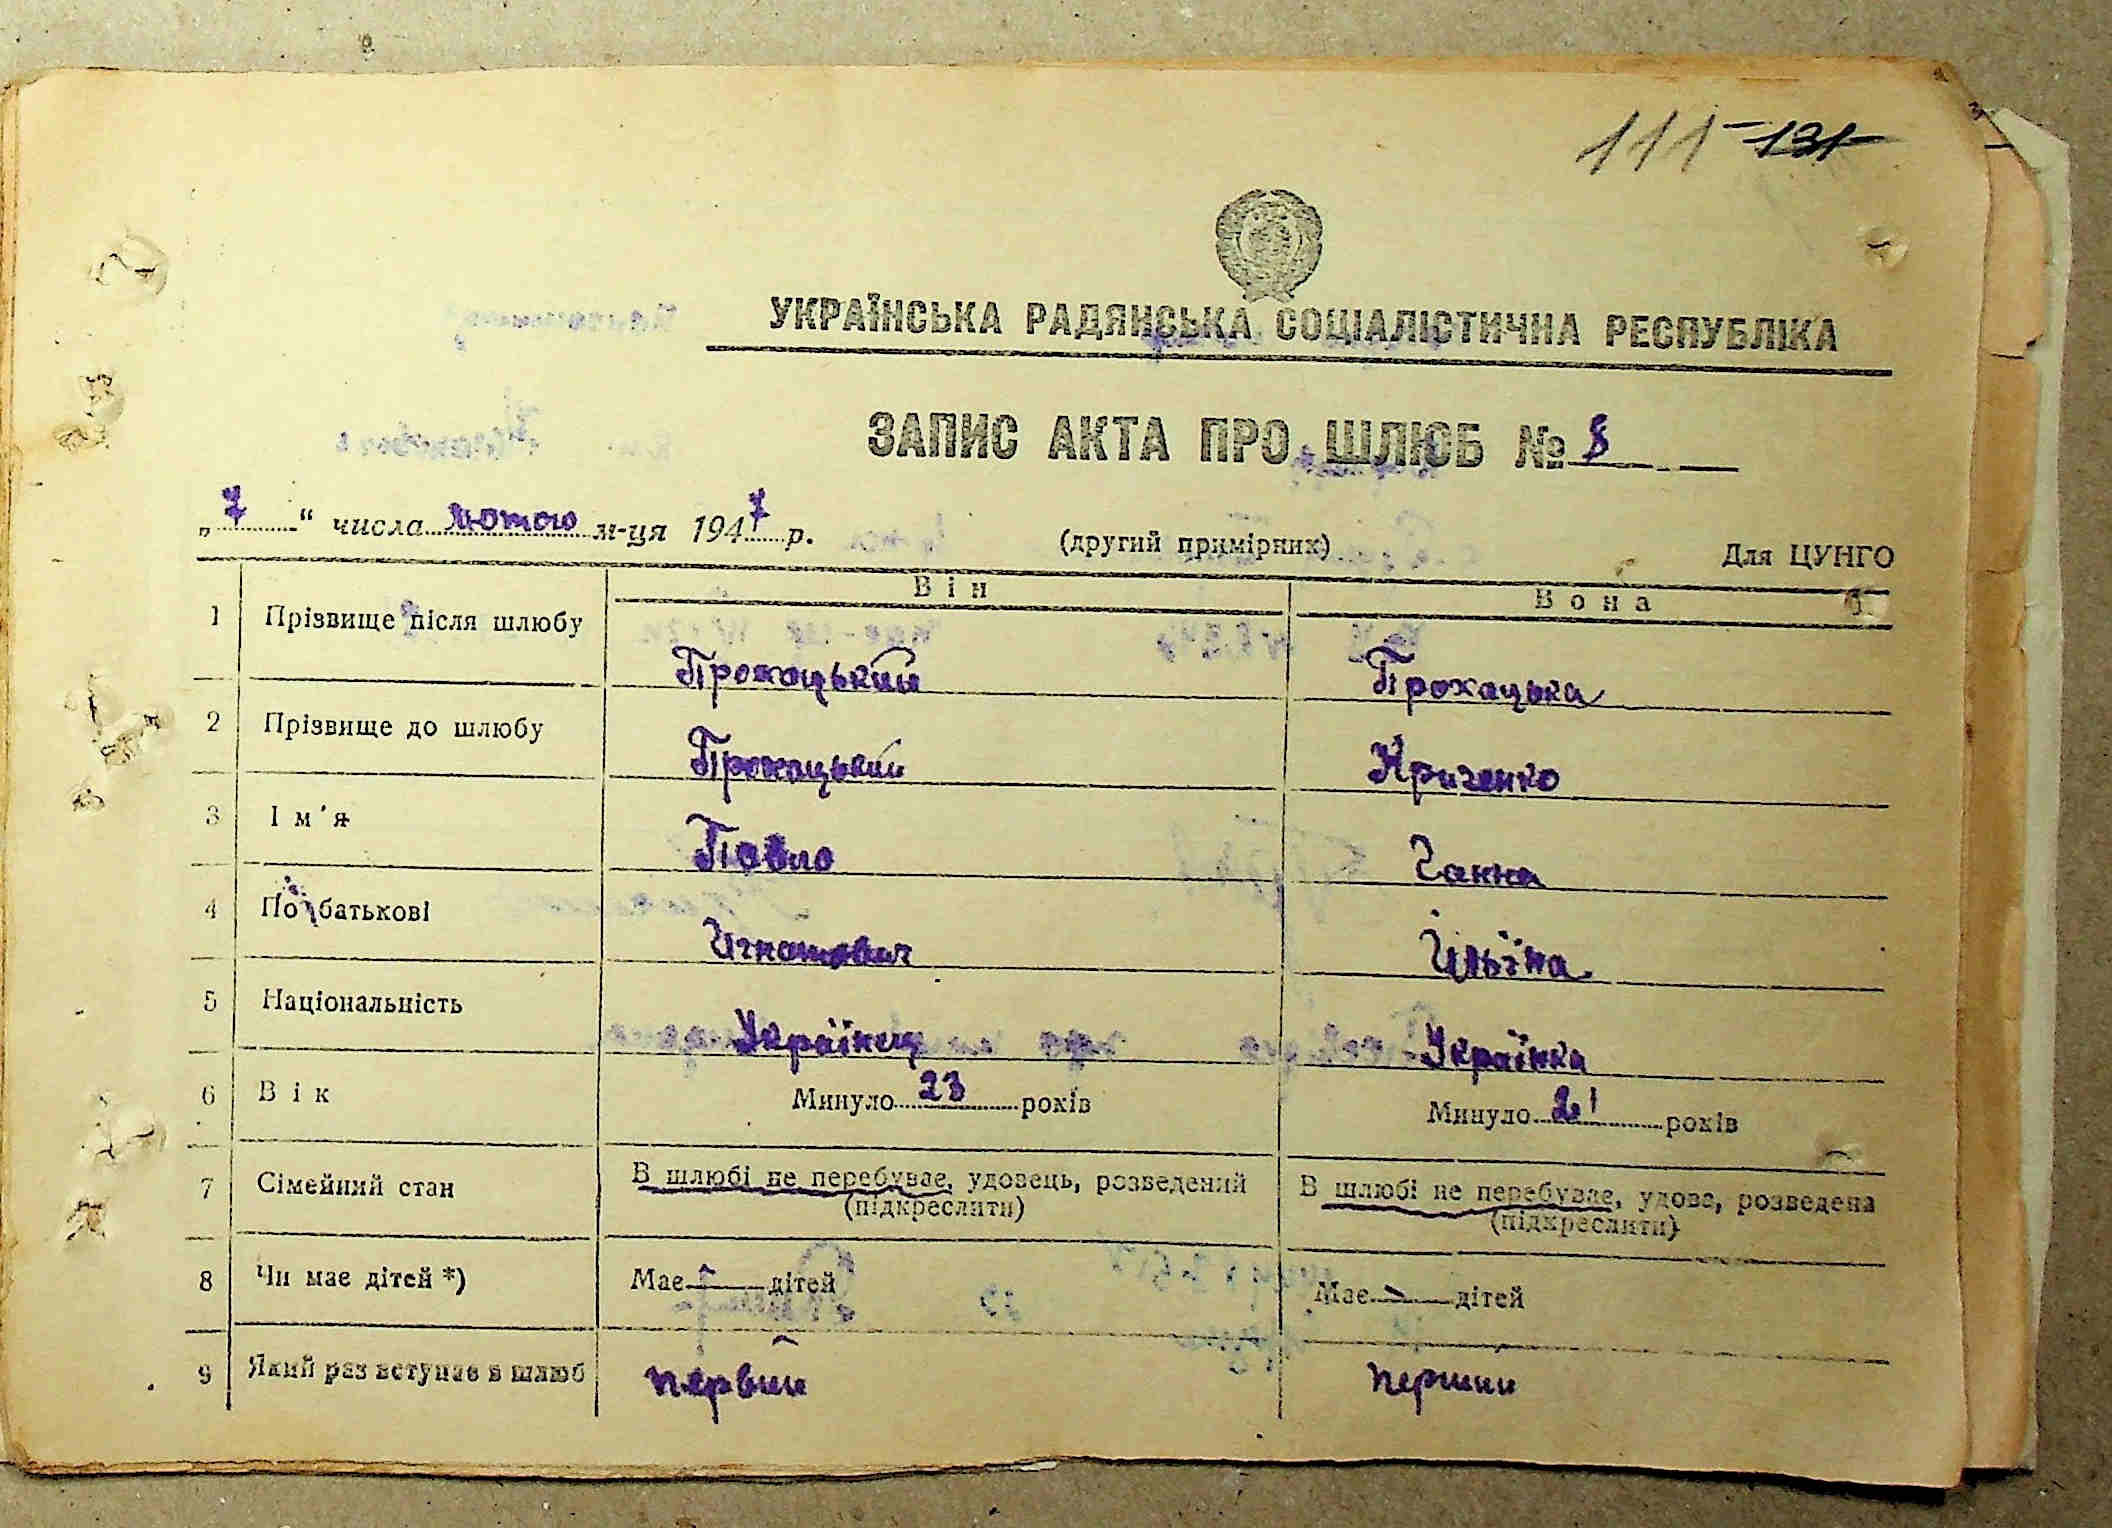 111 131
УКРАЇНСЬКА РАДЯНСЬКА СОЦІАЛІСТИЧНА РЕСПУБЛІКА
ЗАПИС АКТА ПРО ШЛЮБ № 8
„7“ числа лютого м-ця 1947 р. (другий примірник) Для ЦУНГО
Він Вона
1 Прізвище після шлюбу Прохацький Прохацька
2 Прізвище до шлюбу Прохацький Криченко
3 Ім'я Павло Ганна
4 По батькові Игнатович Ильїна
5 Національність Українец Українка
6 Вік Минуло 23 років Минуло 21 років
7 Сімейний стан В шлюбі не перебуває, удовець, розведений В шлюбі не перебуває, удова, розведена
(підкреслити) (підкреслити)
8 Чи має дітей *) Має — дітей Має — дітей
9 Який раз вступає в шлюб первий перший